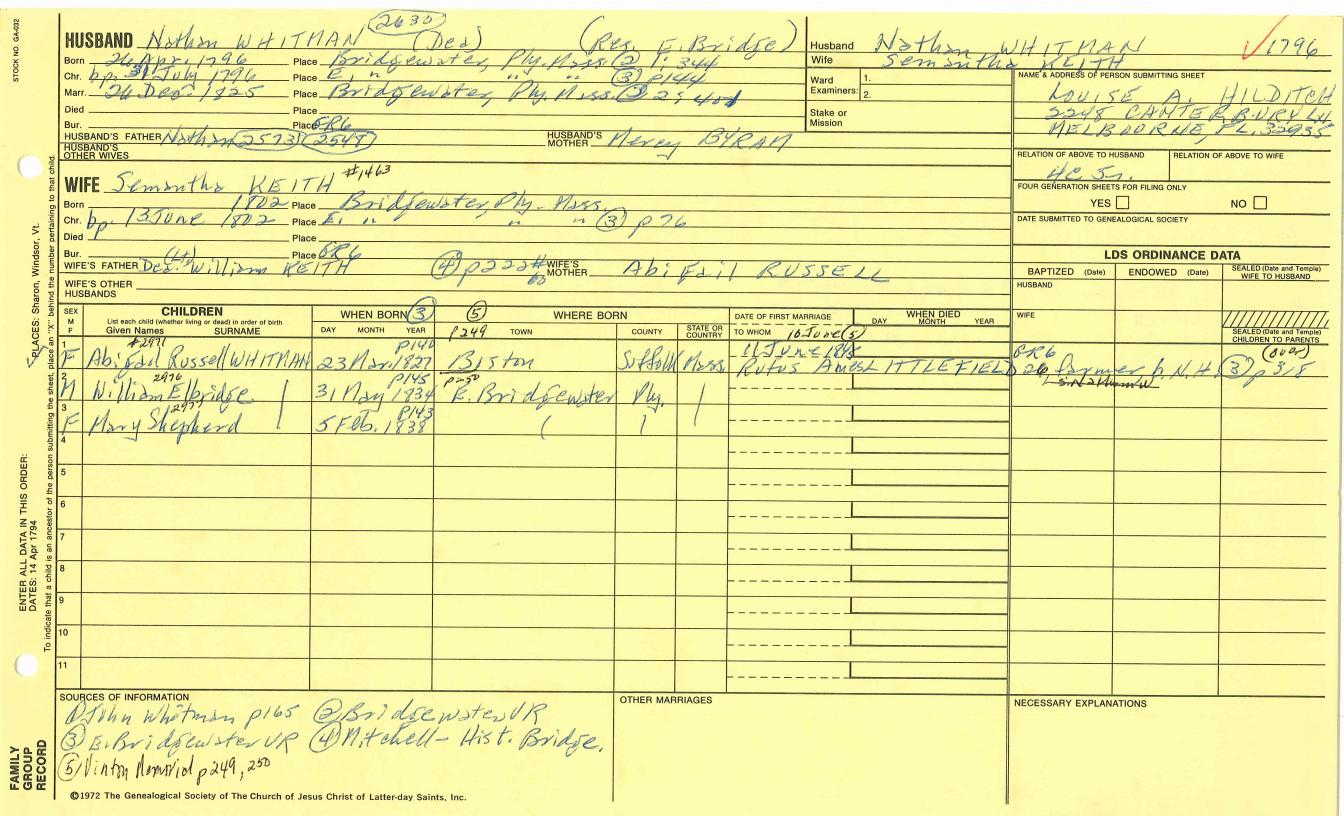 STOCK NO. GA-032
2630
HUSBAND Nathan WHITMAN (Dea) (Res. E. Bridge)
Born 26 Apr. 1796 Place Bridgewater, Ply. Mass. (2) 1: 344
Chr. bp. 31 July 1796 Place E. " " " (3) p144
Marr. 26 Dec. 1825 Place Bridgewater, Ply. Mass. 2: 401
Died Place
Bur. Place GR6
HUSBAND'S FATHER Nathan 2573 2548 HUSBAND'S MOTHER Mercy BYRAM
HUSBAND'S OTHER WIVES
WIFE Semantha KEITH #1463
Born 1802 Place Bridgewater, Ply. Mass.
Chr. bp. 13 June 1802 Place E. " " " (3) p76
Died Place
Bur. Place GR6
(Lt)
WIFE'S FATHER Dea. William KEITH (4) p222# 60 WIFE'S MOTHER Abigail RUSSELL
WIFE'S OTHER HUSBANDS
Husband Nathan WHITMAN
Wife Semantha KEITH
√1796
Ward Examiners: 1.
2.
Stake or Mission
NAME & ADDRESS OF PERSON SUBMITTING SHEET
LOUISE A. HILDITCH
2248 CANTERBURY LN
MELBOURNE, FL. 32935
RELATION OF ABOVE TO HUSBAND RELATION OF ABOVE TO WIFE
FOUR GENERATION SHEETS FOR FILING ONLY
YES NO
DATE SUBMITTED TO GENEALOGICAL SOCIETY
LDS ORDINANCE DATA
BAPTIZED (Date) ENDOWED (Date) SEALED (Date and Temple) WIFE TO HUSBAND
HUSBAND
WIFE
SEALED (Date and Temple) CHILDREN TO PARENTS
SEX M F
CHILDREN
List each child (whether living or dead) in order of birth
Given Names SURNAME
WHEN BORN (3)
DAY MONTH YEAR
(5) WHERE BORN
p249 TOWN COUNTY STATE OR COUNTRY
DATE OF FIRST MARRIAGE
TO WHOM
WHEN DIED
DAY MONTH YEAR
10 June (5)
#2971 p140 11 June 1848 GR6 (over)
1 F Abigail Russell WHITMAN 23 Mar 1827 Boston Suffolk Mass. Rufus Ames LITTLEFIELD 26 farmer b. N.H. (3) p318
2976 p145 p250
2 M William Elbridge 31 May 1834 E. Bridgewater Ply.
2977 p143
3 F Mary Shepherd 5 Feb. 1838
4
5
6
7
8
9
10
11
SOURCES OF INFORMATION
(1) John Whitman p165 (2) Bridgewater VR
(3) E. Bridgewater VR (4) Mitchell - Hist. Bridge.
(5) Vinton Memorial p249, 250
OTHER MARRIAGES
NECESSARY EXPLANATIONS
©1972 The Genealogical Society of The Church of Jesus Christ of Latter-day Saints, Inc.
FAMILY GROUP RECORD
ENTER ALL DATA IN THIS ORDER:
DATES: 14 Apr 1794
PLACES: Sharon, Windsor, Vt.
To indicate that a child is an ancestor of the person submitting the sheet, place an "X" behind the number pertaining to that child.